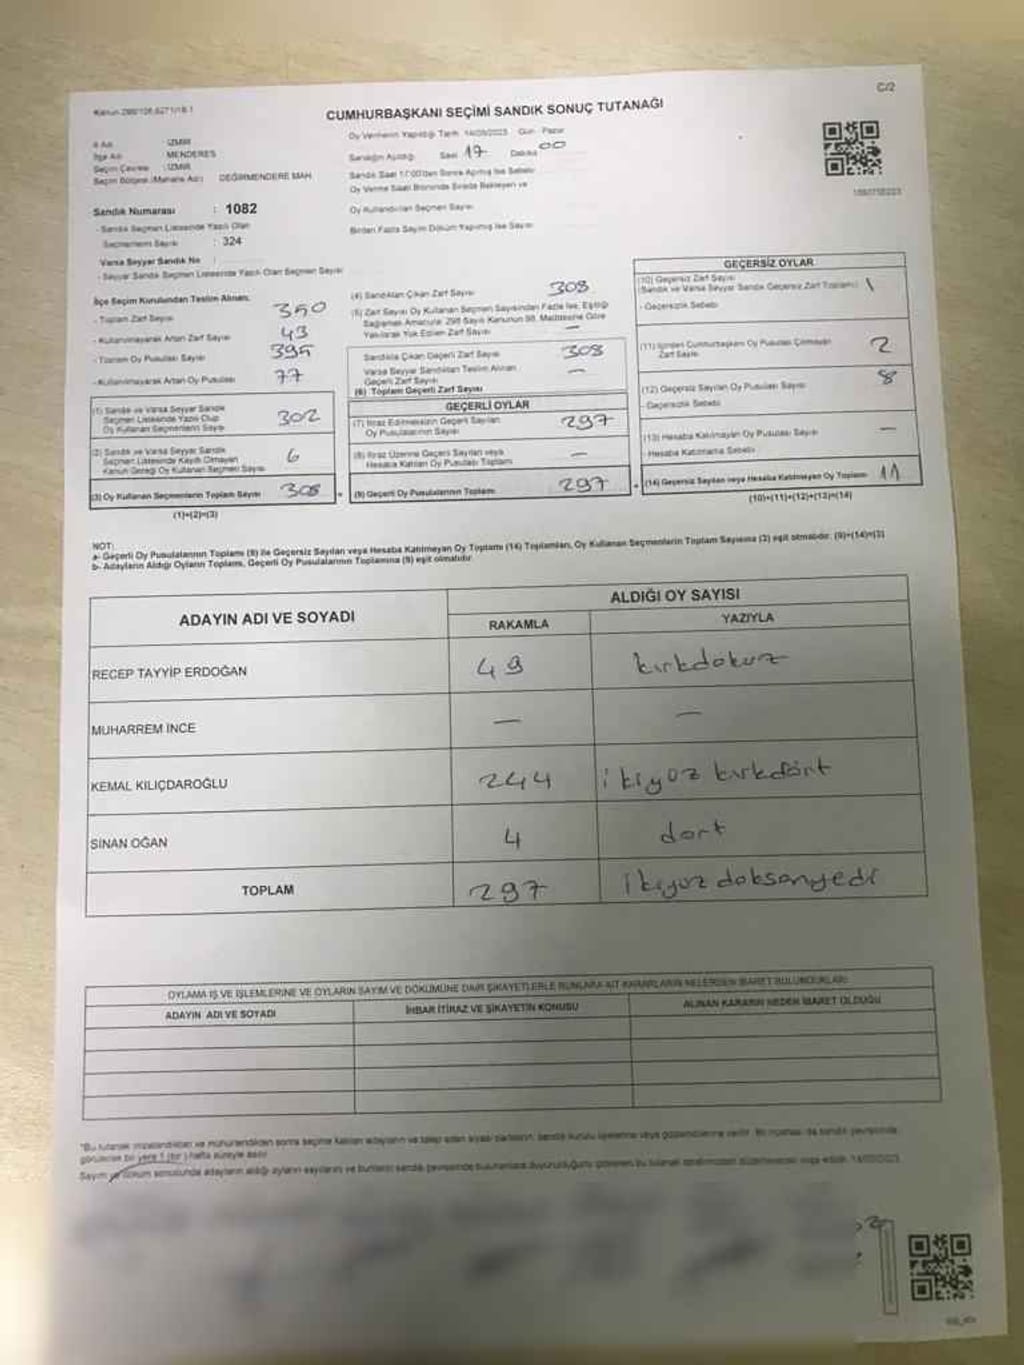 C/2
CUMHURBAŞKANI SEÇİMİ SANDIK SONUÇ TUTANAĞI
Oy Vermenin Yapıldığı Tarih 14/05/2023 Gün Pazar
İl Adı : İZMİR
İlçe Adı : MENDERES
Seçim Çevresi : İZMİR
Seçim Bölgesi (Mahalle Adı) : DEĞİRMENDERE MAH.
Sandığın Açıldığı Saat 17 Dakika 00
Sandık Saat 17:00'den Sonra Açılmış İse Sebebi
Oy Verme Saati Bitiminde Sırada Bekleyen ve
Oy Kullandırılan Seçmen Sayısı
Birden Fazla Sayım Döküm Yapılmış İse Sayısı
Sandık Numarası : 1082
- Sandık Seçmen Listesinde Yazılı Olan
Seçmenlerin Sayısı : 324
Varsa Seyyar Sandık No :
- Seyyar Sandık Seçmen Listesinde Yazılı Olan Seçmen Sayısı
İlçe Seçim Kurulundan Teslim Alınan;
- Toplam Zarf Sayısı 350
- Kullanılmayarak Artan Zarf Sayısı 43
- Toplam Oy Pusulası Sayısı 395
- Kullanılmayarak Artan Oy Pusulası 77
(1) Sandık ve Varsa Seyyar Sandık
Seçmen Listesinde Yazılı Olup
Oy Kullanan Seçmenlerin Sayısı 302
(2) Sandık ve Varsa Seyyar Sandık
Seçmen Listesinde Kayıtlı Olmayan
Kanun Gereği Oy Kullanan Seçmen Sayısı 6
(3) Oy Kullanan Seçmenlerin Toplam Sayısı 308
(1)+(2)=(3)
(4) Sandıktan Çıkan Zarf Sayısı 308
(5) Zarf Sayısı Oy Kullanan Seçmen Sayısından Fazla İse, Eşitliği
Sağlamak Amacıyla; 298 Sayılı Kanunun 98. Maddesine Göre
Yakılarak Yok Edilen Zarf Sayısı —
Sandıkta Çıkan Geçerli Zarf Sayısı 308
Varsa Seyyar Sandıktan Teslim Alınan
Geçerli Zarf Sayısı —
(6) Toplam Geçerli Zarf Sayısı
GEÇERLİ OYLAR
(7) İtiraz Edilmeksizin Geçerli Sayılan
Oy Pusulalarının Sayısı 297
(8) İtiraz Üzerine Geçerli Sayılan veya
Hesaba Katılan Oy Pusulası Toplamı —
= (9) Geçerli Oy Pusulalarının Toplamı 297
GEÇERSİZ OYLAR
(10) Geçersiz Zarf Sayısı
(Sandık ve Varsa Seyyar Sandık Geçersiz Zarf Toplamı) 1
- Geçersizlik Sebebi
(11) İçinden Cumhurbaşkanı Oy Pusulası Çıkmayan
Zarf Sayısı 2
(12) Geçersiz Sayılan Oy Pusulası Sayısı 8
- Geçersizlik Sebebi
(13) Hesaba Katılmayan Oy Pusulası Sayısı —
- Hesaba Katılmama Sebebi
+ (14) Geçersiz Sayılan veya Hesaba Katılmayan Oy Toplamı 11
(10)+(11)+(12)+(13)=(14)
NOT:
a- Geçerli Oy Pusulalarının Toplamı (9) ile Geçersiz Sayılan veya Hesaba Katılmayan Oy Toplamı (14) Toplamları, Oy Kullanan Seçmenlerin Toplam Sayısına (3) eşit olmalıdır. (9)+(14)=(3)
b- Adayların Aldığı Oyların Toplamı, Geçerli Oy Pusulalarının Toplamına (9) eşit olmalıdır.
ADAYIN ADI VE SOYADI ALDIĞI OY SAYISI
RAKAMLA YAZIYLA
RECEP TAYYİP ERDOĞAN 49 kırkdokuz
MUHARREM İNCE — —
KEMAL KILIÇDAROĞLU 244 ikiyüz kırkdört
SİNAN OĞAN 4 dört
TOPLAM 297 ikiyüz doksanyedi
OYLAMA İŞ VE İŞLEMLERİNE VE OYLARIN SAYIM VE DÖKÜMÜNE DAİR ŞİKAYETLERLE BUNLARA AİT KARARLARIN NELERDEN İBARET BULUNDUKLARI
ADAYIN ADI VE SOYADI İHBAR İTİRAZ VE ŞİKAYETİN KONUSU ALINAN KARARIN NEDEN İBARET OLDUĞU